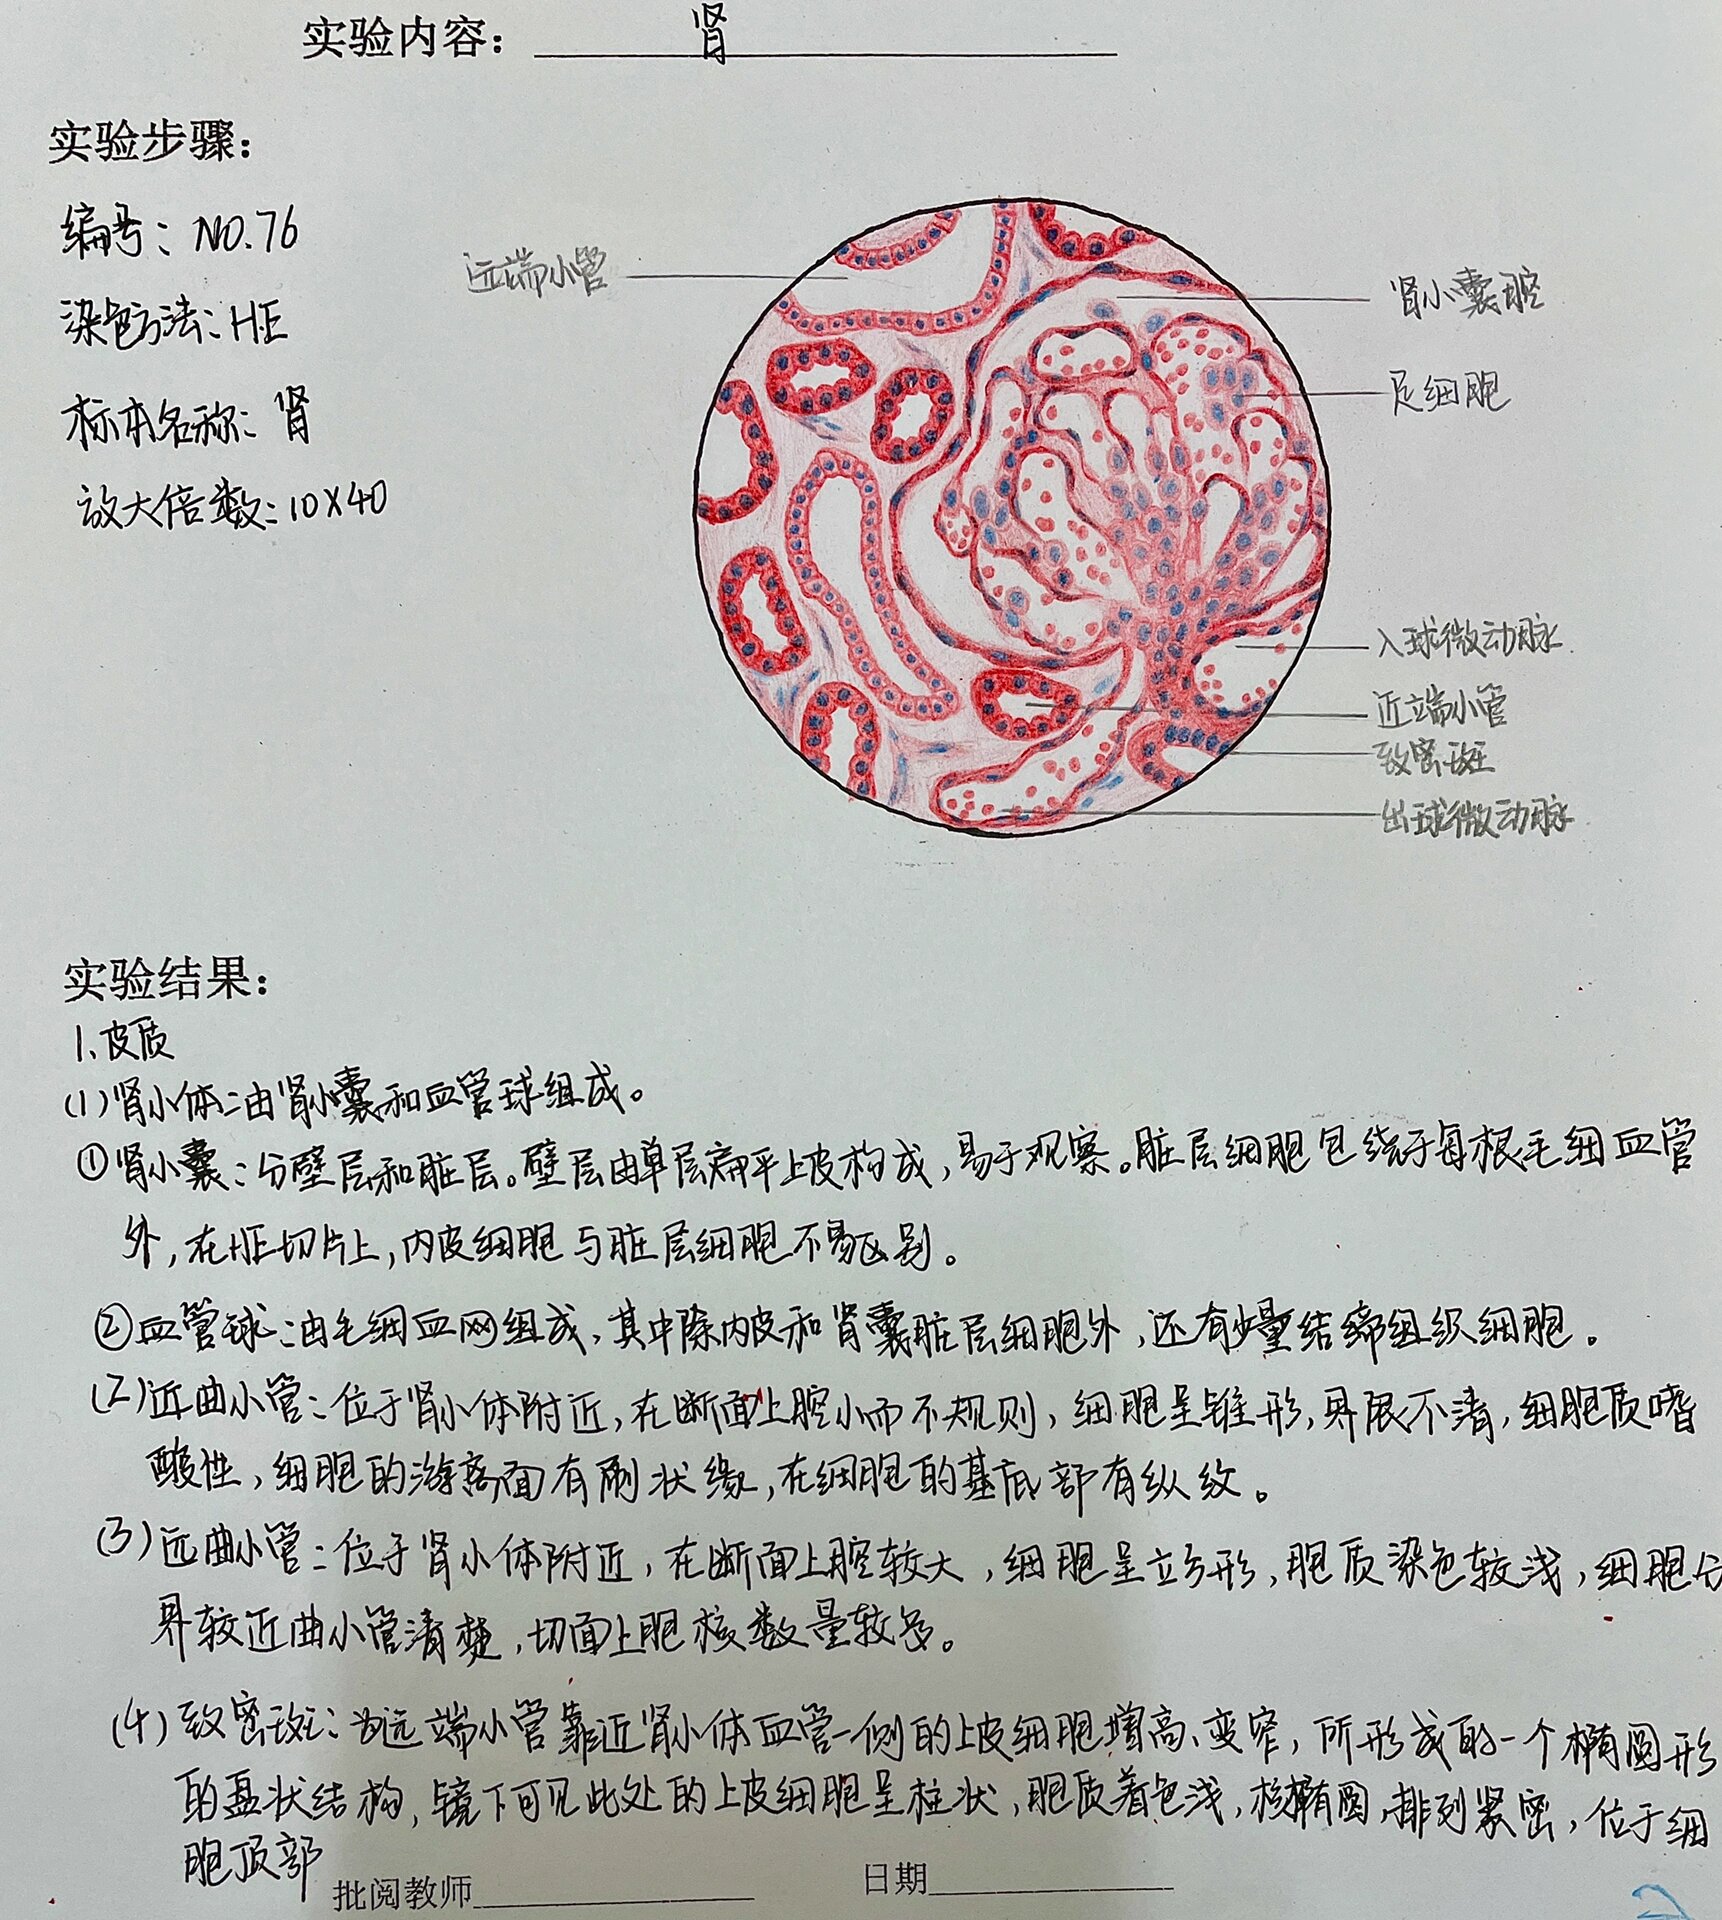 实验内容： 肾
实验步骤：
编号：NO.76
染色方法：HE
标本名称：肾
放大倍数：10×40
远端小管
肾小囊腔
足细胞
入球微动脉
近端小管
致密斑
出球微动脉
实验结果：
1.皮质
(1)肾小体：由肾小囊和血管球组成。
①肾小囊：分壁层和脏层。壁层由单层扁平上皮构成，易于观察。脏层细胞包绕于每根毛细血管
外，在HE切片上，内皮细胞与脏层细胞不易区别。
②血管球：由毛细血网组成，其中除内皮和肾囊脏层细胞外，还有少量结缔组织细胞。
(2)近曲小管：位于肾小体附近，在断面上腔小而不规则，细胞呈锥形，界限不清，细胞质嗜
酸性，细胞的游离面有刷状缘，在细胞的基底部有纵纹。
(3)远曲小管：位于肾小体附近，在断面上腔较大，细胞呈立方形，胞质染色较浅，细胞分
界较近曲小管清楚，切面上胞核数量较多。
(4)致密斑：为远端小管靠近肾小体血管一侧的上皮细胞增高、变窄，所形成的一个椭圆形
的盘状结构，镜下可见此处的上皮细胞呈柱状，胞质着色浅，核椭圆，排列紧密，位于细
胞顶部
批阅教师 日期